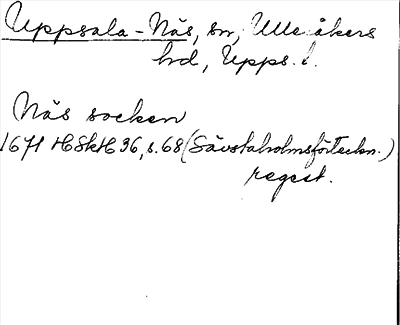 Uppsala-Näs, sn, Ulleråkers
hd, Upps. l.
Näs socken
1671 HSkH 36, s. 68 (Sävstaholmsförteckn.)
regest.